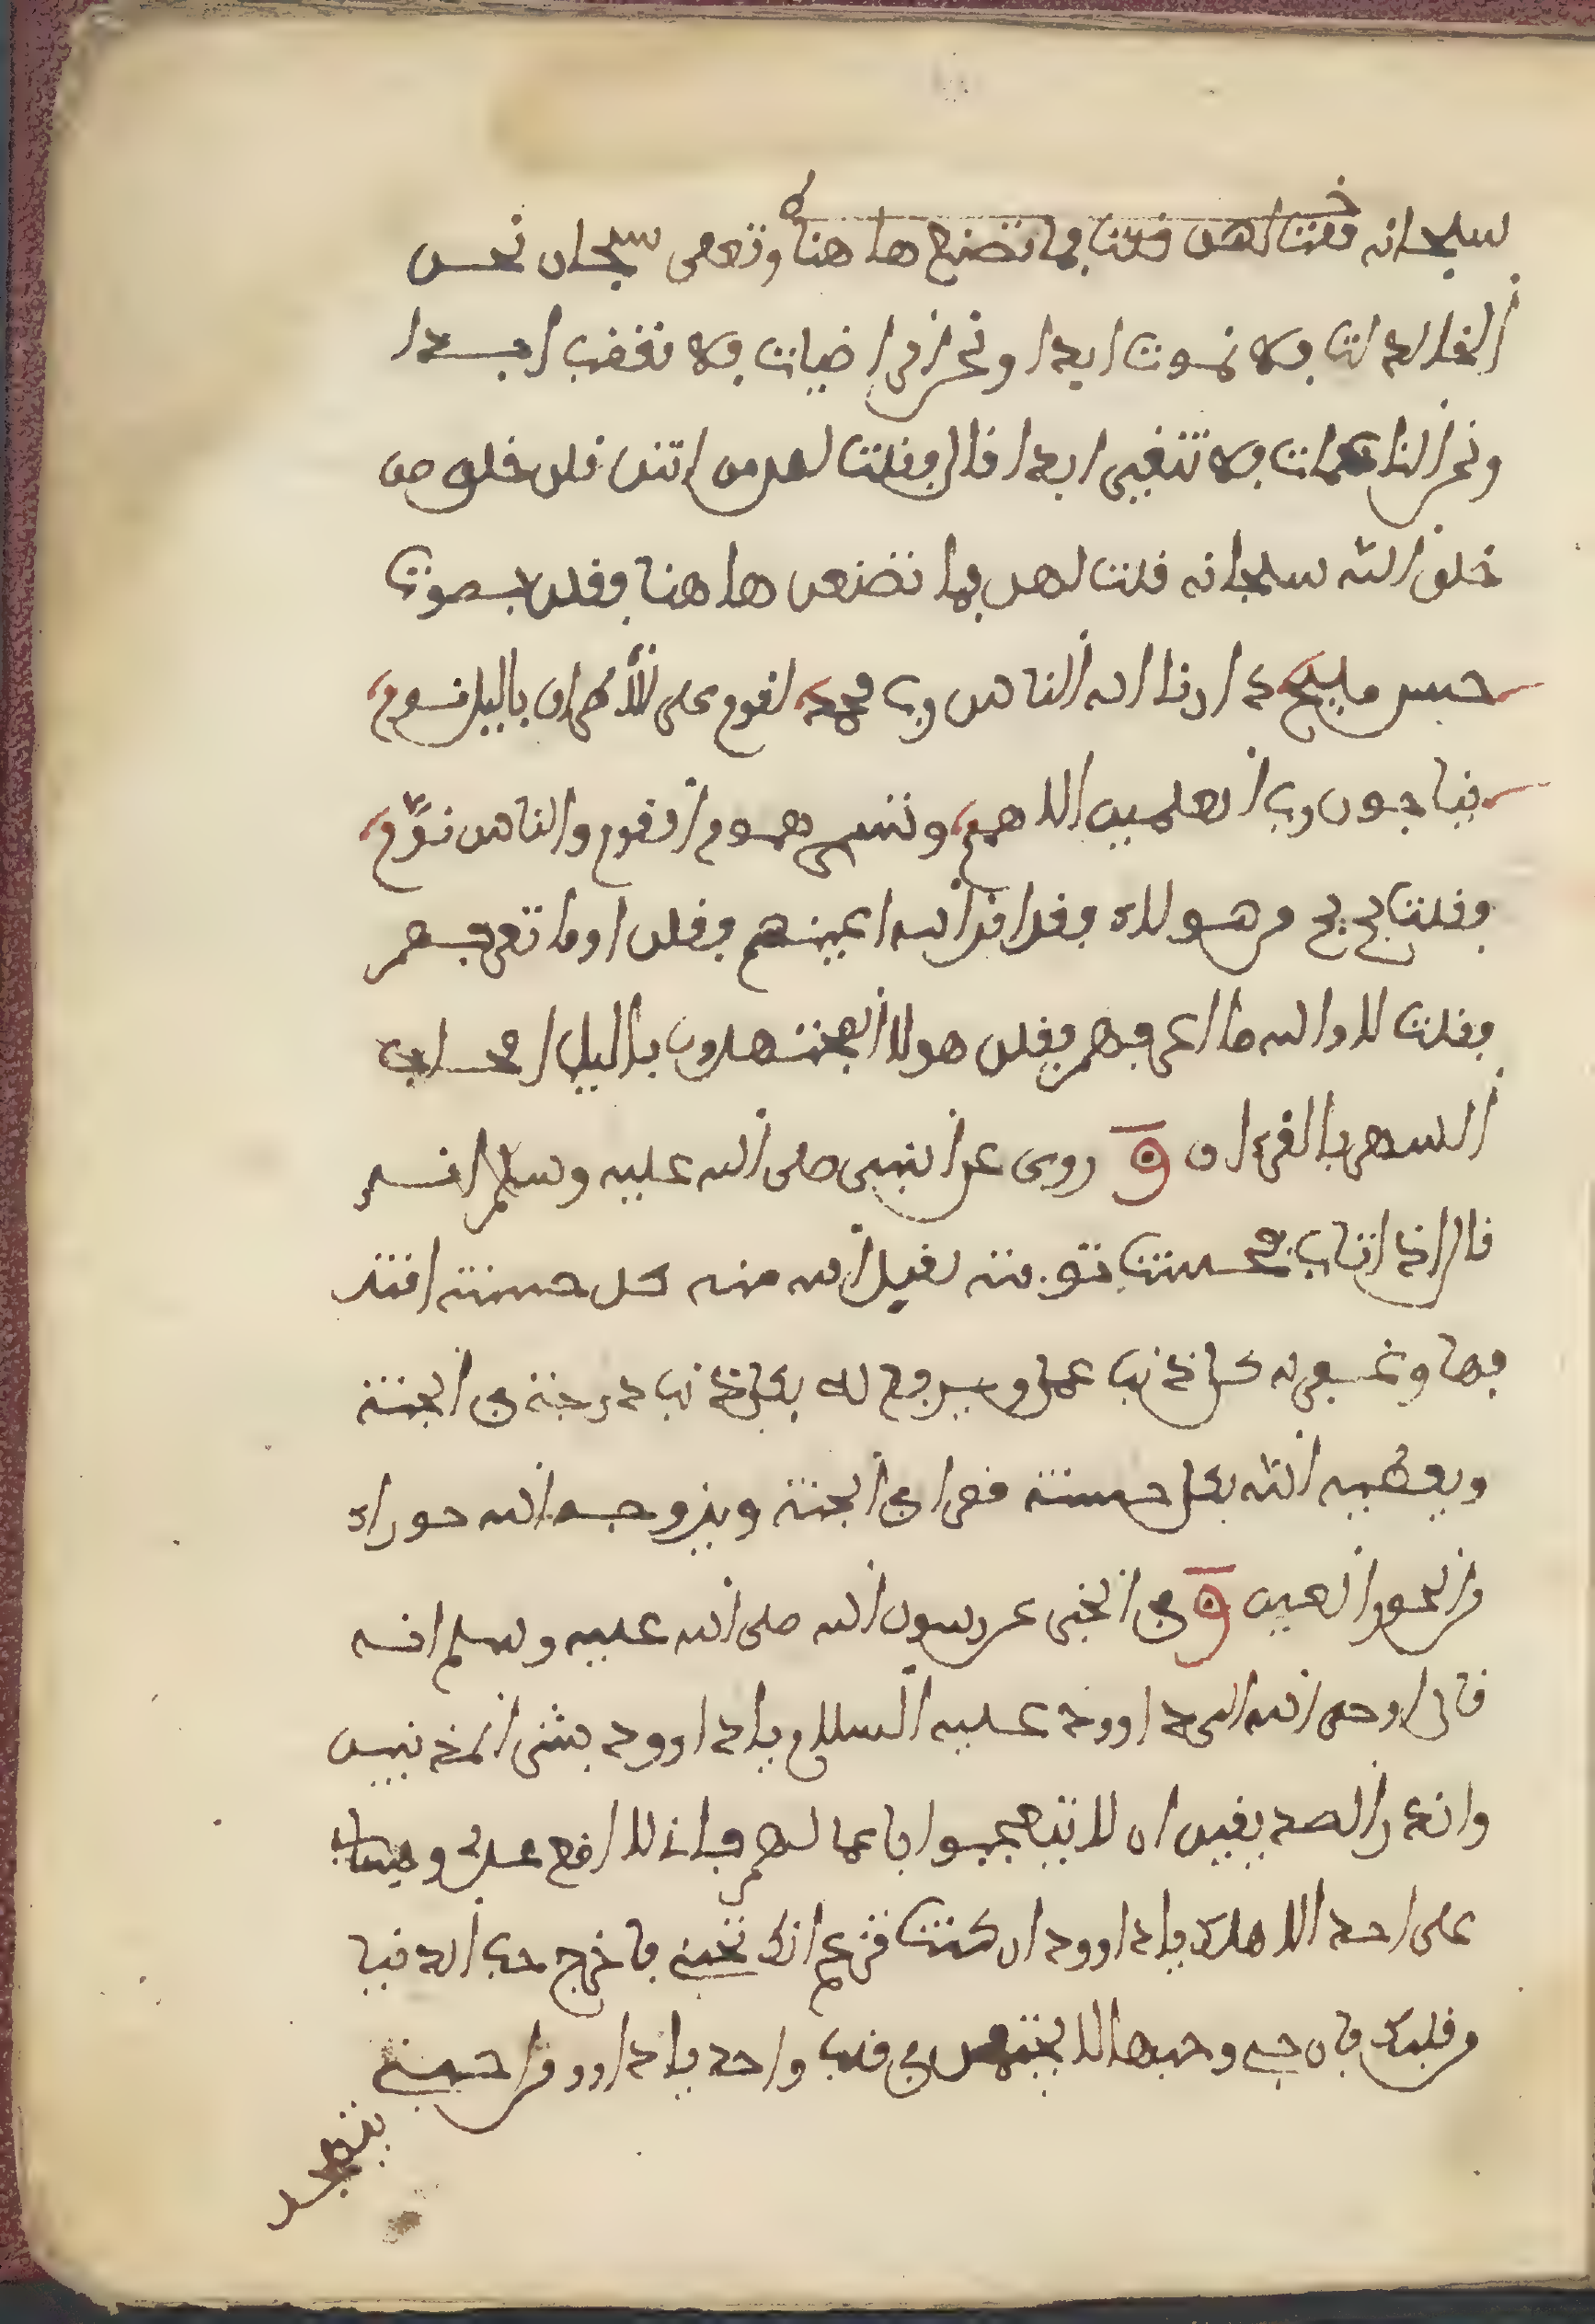 سبحانه فقلت لهن قلت فما تصنع ها هنا وتعصى سبحان نحن
الخالدات فلا نموت ابدا ونحن الراضيات فلا نغضب ابدا
ونحن الناعمات فلا تتغيى ابدا قال فقلت لهن من انتن قلن خلق من
خلق الله سبحانه قلت لهن فما تصنعن ها هنا فقلن بصوت
حسن مليح درانا اله الناس رب محمد لقوم على الأطراف بالليل نسوم
يناجون رب العلمين اللاههم وتسرى هموم القوم والناس نوم
فقلت بخ بخ من هولاء فقد اقر الله اعينهم فقلن اوما تعرفهم
فقلت لا والله ما اعرفهم فقلن هولا المجتهدون باليل اصحاب
السهر بالقرءان ق روى عن النبى صلى الله عليه وسلم انه
قال اذا تاب توبته يقبل الله منه كل حسنة
فيها وغفر له كل ذنب عمل ويرفع له بكل ذنب درجة في الجنة
ويعطيه الله بكل حسنة قصرا في الجنة ويزوجه الله حوراء
من الحور العين ق في الخبر عن رسول الله صلى الله عليه وسلم انه
قال اوحى الله الى داوود عليه السلام يا داوود بشر المذنبين
وانذر الصديقين ان لا يتعجبوا باعمالهم فانى لا اضع عدلى وحسابى
على احد الا هلك يا داوود ان كنت تزعم انك تحبنى فاخرج حب الدنيا
من قلبك فان حبى وحبها لا يجتمعن في قلب واحد يا داوود من احبنى
يتهجد